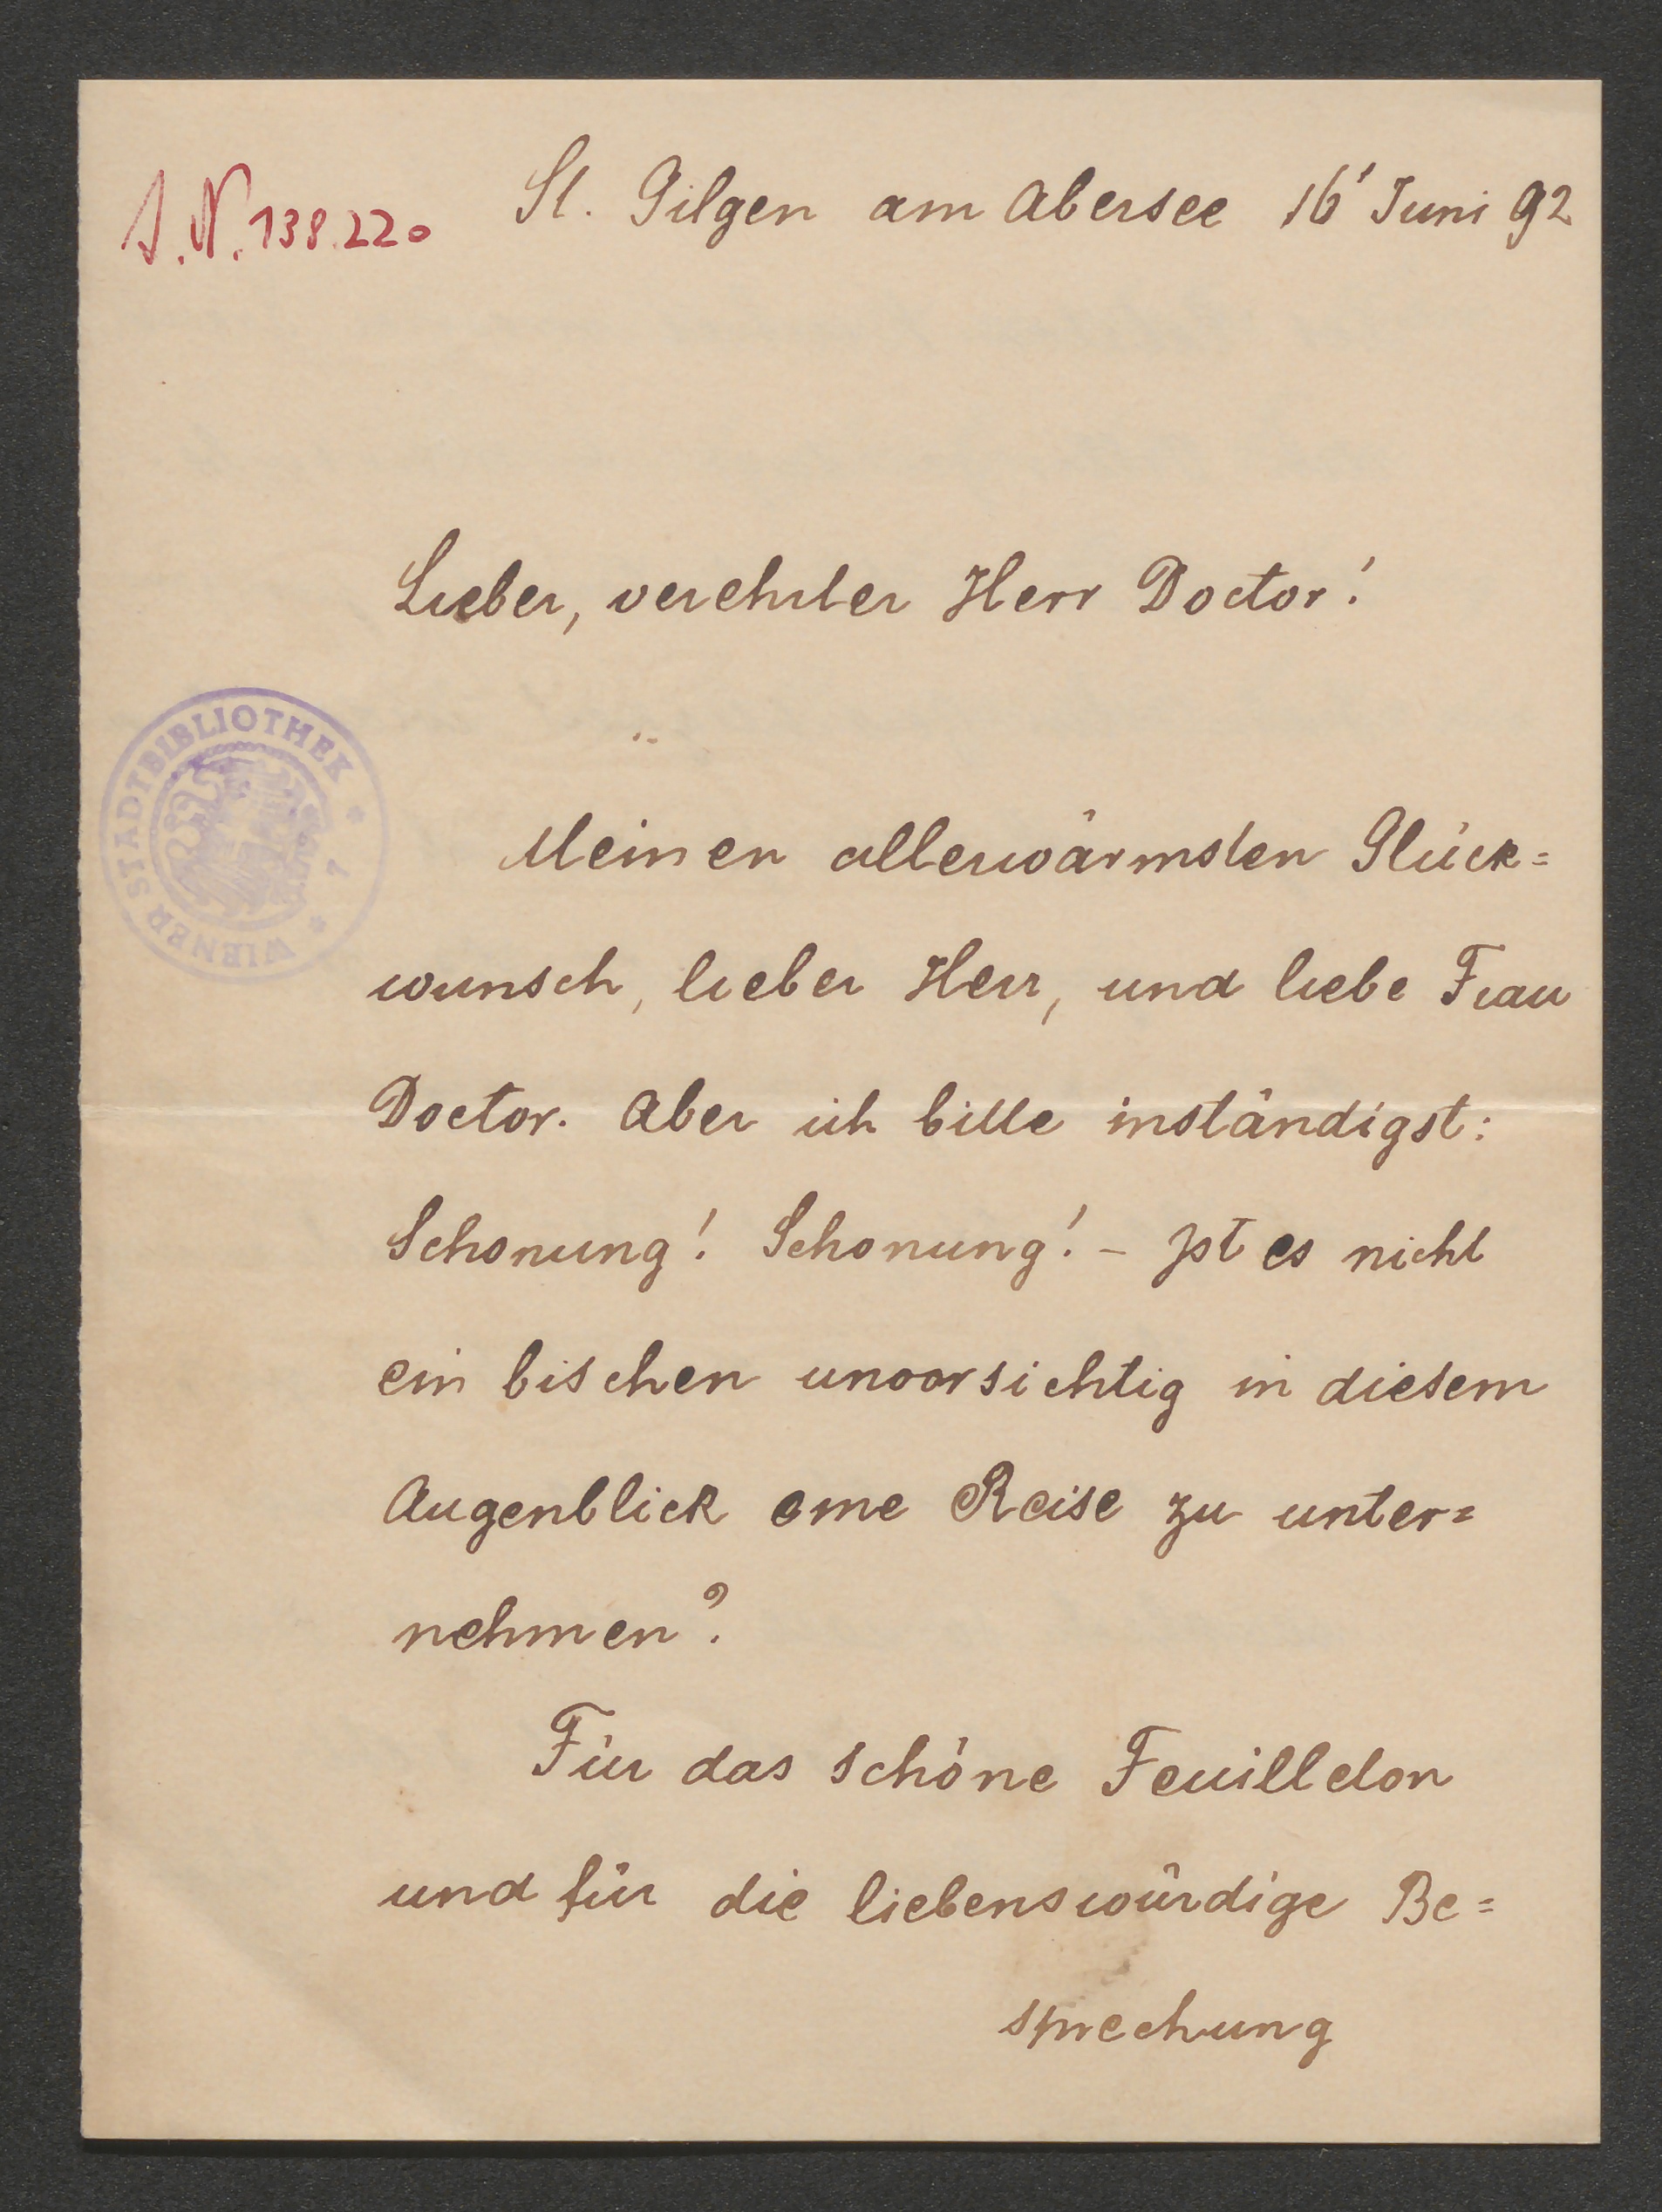 J.N. 138.220
St. Gilgen am Abersee 16' Juni 92
Lieber, verehrter Herr Doctor!
WIENER STADTBIBLIOTHEK * 7 *
Meinen allerwärmsten Glück=
wunsch, lieber Herr, und liebe Frau
Doctor. Aber ich bitte inständigst:
Schonung! Schonung! – Ist es nicht
ein bischen unvorsichtig in diesem
Augenblick eine Reise zu unter=
nehmen?
Für das schöne Feuilleton
und für die liebenswürdige Be=
sprechung